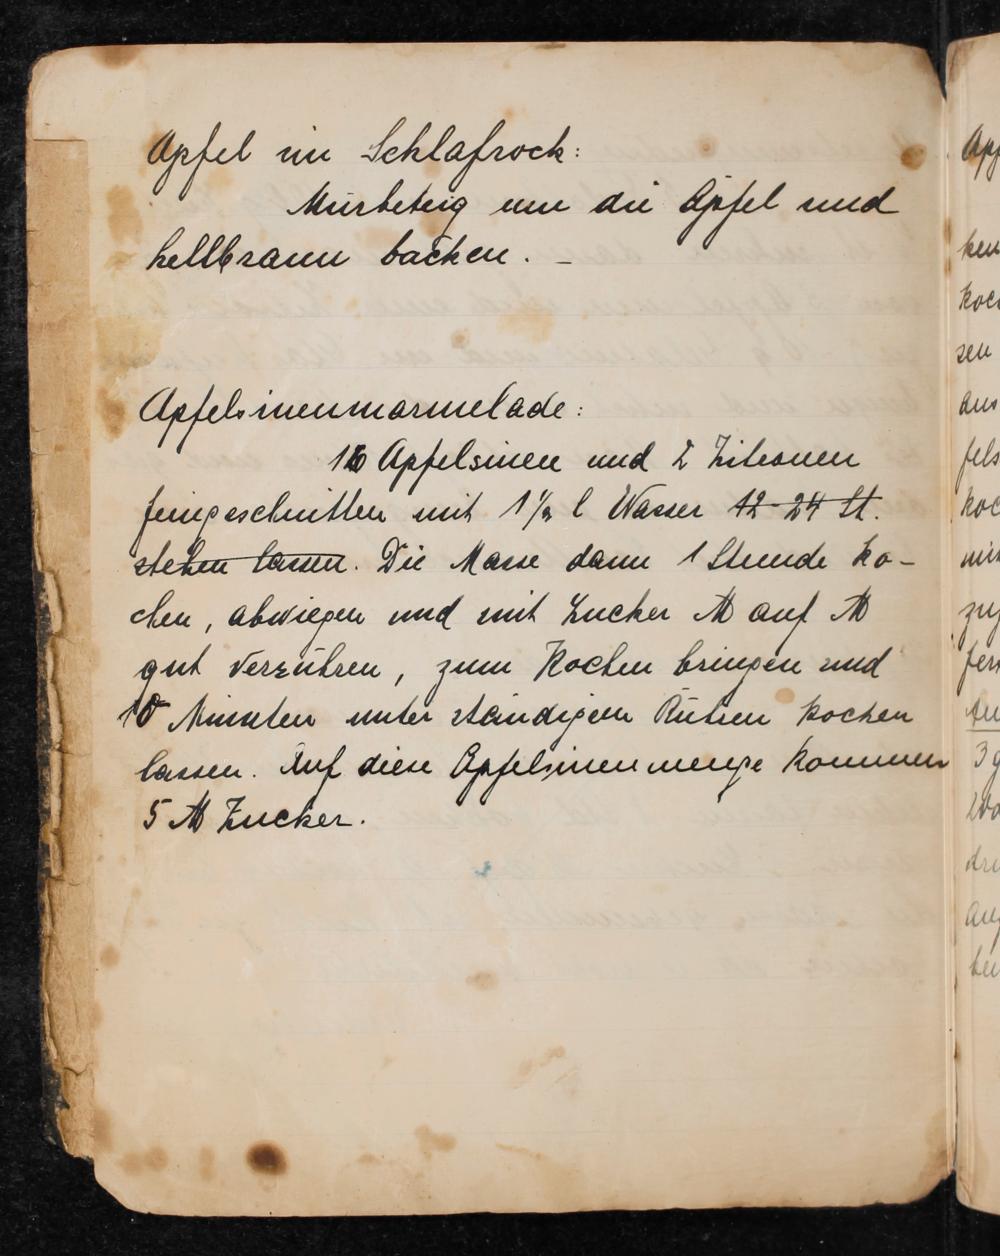 Apfel im Schlafrock:
Mürbeteig um die Äpfel und
hellbraun backen. –
Apfelsinenmarmelade:
16 Apfelsinen und 2 Zitronen
feingeschnitten mit 1 1/2 l Wasser 12-24 St.
stehen lassen. Die Masse dann 1 Stunde ko-
chen, abwiegen und mit Zucker ℔ auf ℔
gut verrühren, zum Kochen bringen und
10 Minuten unter ständigem Rühren kochen
lassen. Auf diese Apfelsinenmenge kommen
5 ℔ Zucker.
ken
sen
aus
fels
koc
mit
3 g